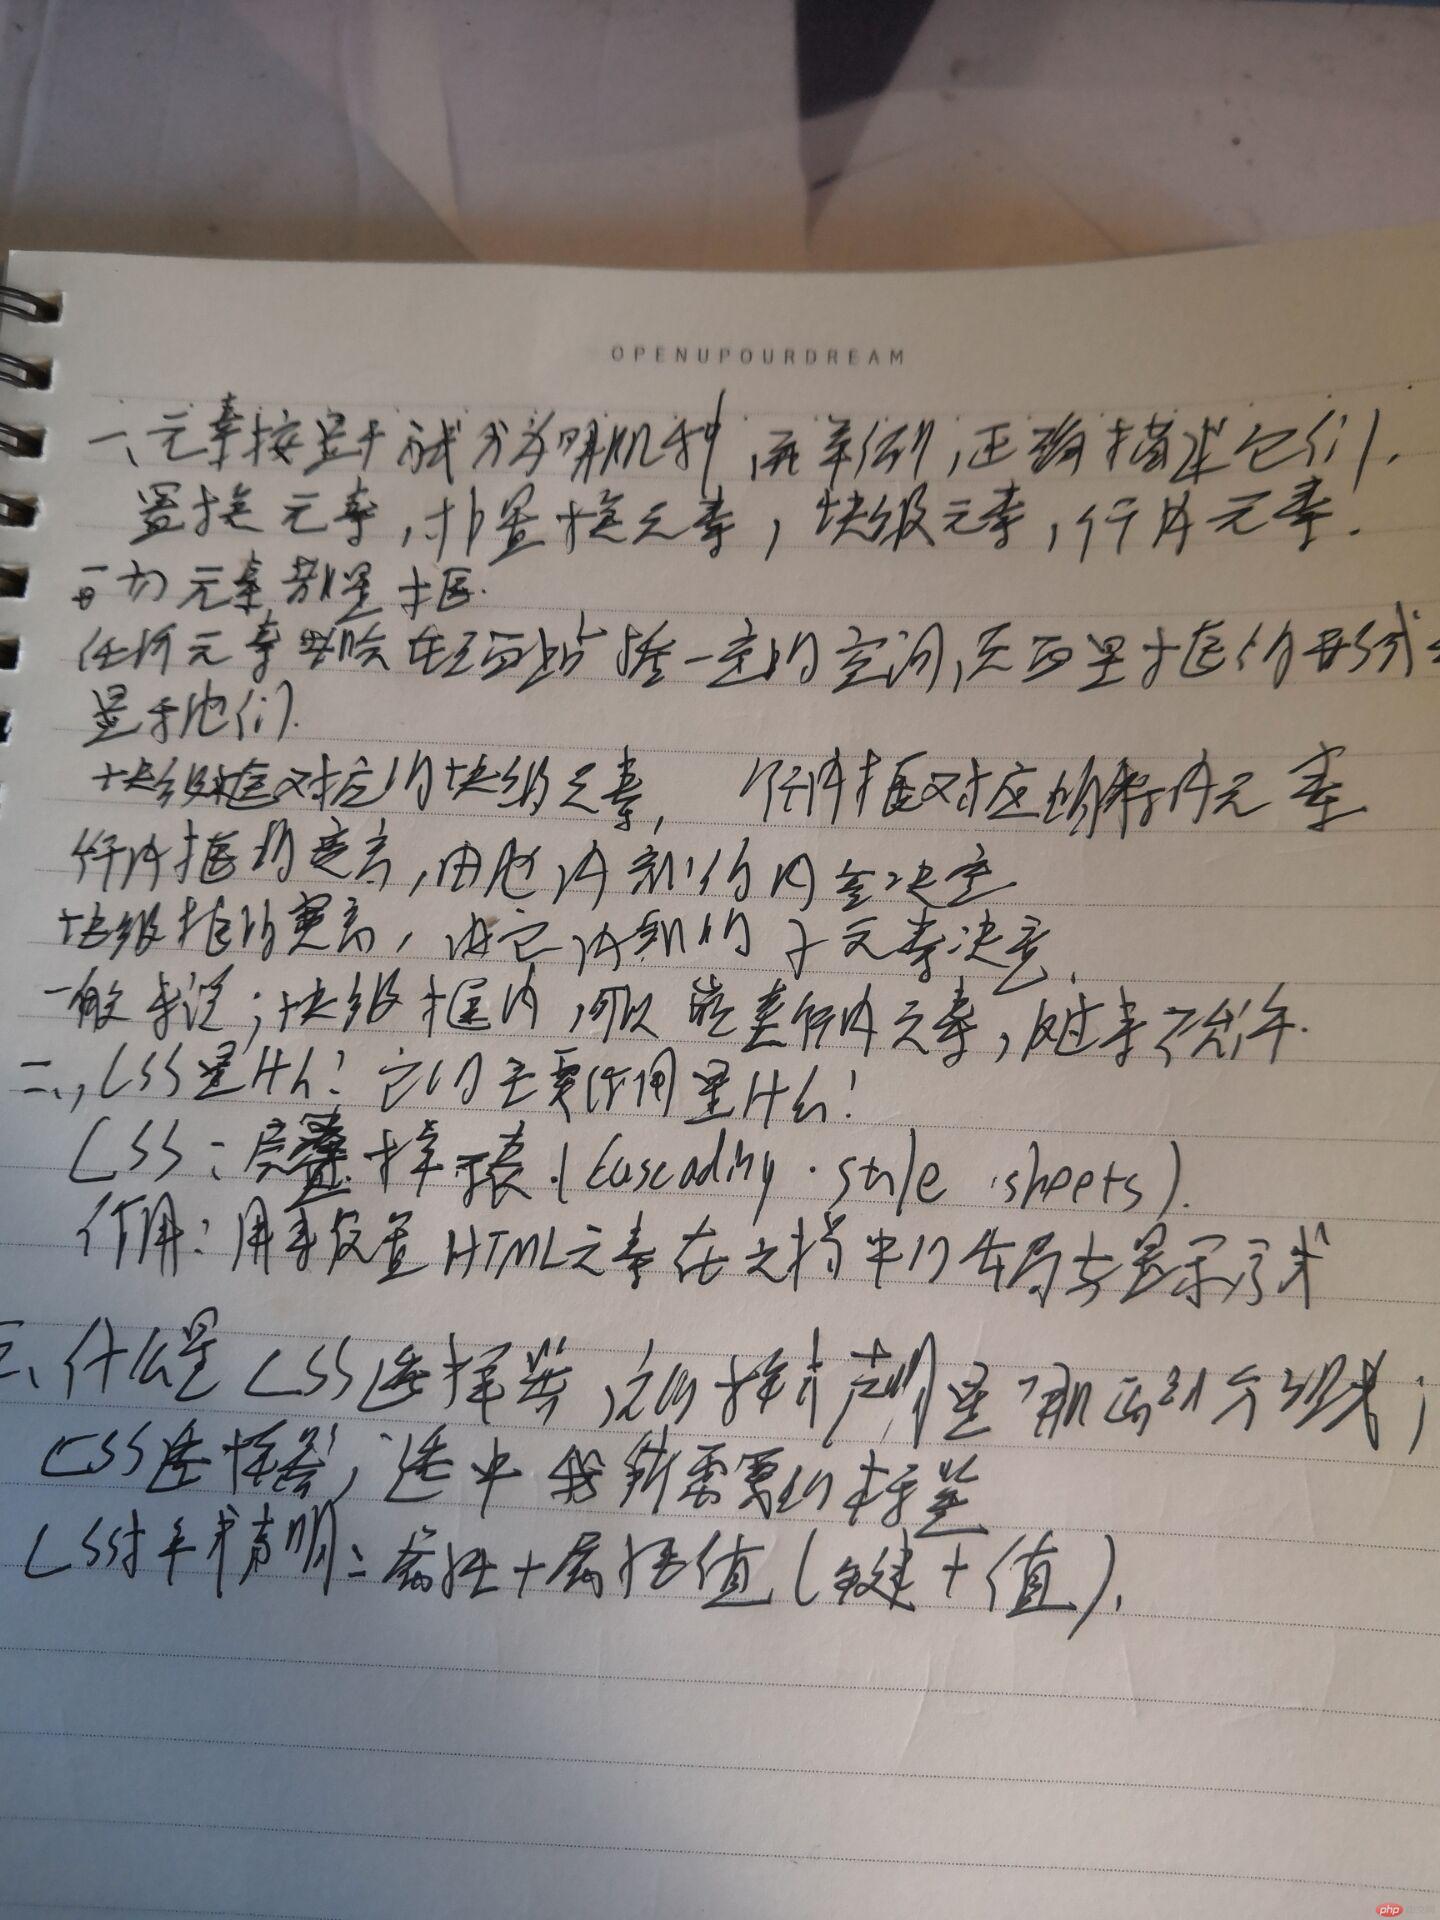 OPENUPOURDREAM
一、元素按显示方式分为哪几种,并举例,正确描述它们.
置换元素,非置换元素,块级元素,行内元素.
一切元素都是框.
任何元素都会在页面占据一定的空间,页面是框的形式
显示他们.
块级框对应的块级元素, 行内框对应的行内元素
行内框的宽高,由它内部的内容决定
块级框的宽高,由它内部的子元素决定.
一般来说;块级框内,可以嵌套行内元素,反过来不允许.
二、,CSS是什么!它的主要作用是什么!
CSS:层叠样式表.(Cascading style sheets).
作用:用来设置HTML元素在文档中的布局与显示方式
三、什么是CSS选择器,它的样式声明是哪两部分组成;
CSS选择器;选中我所需要的标签
CSS样式声明:属性+属性值(键+值).
php